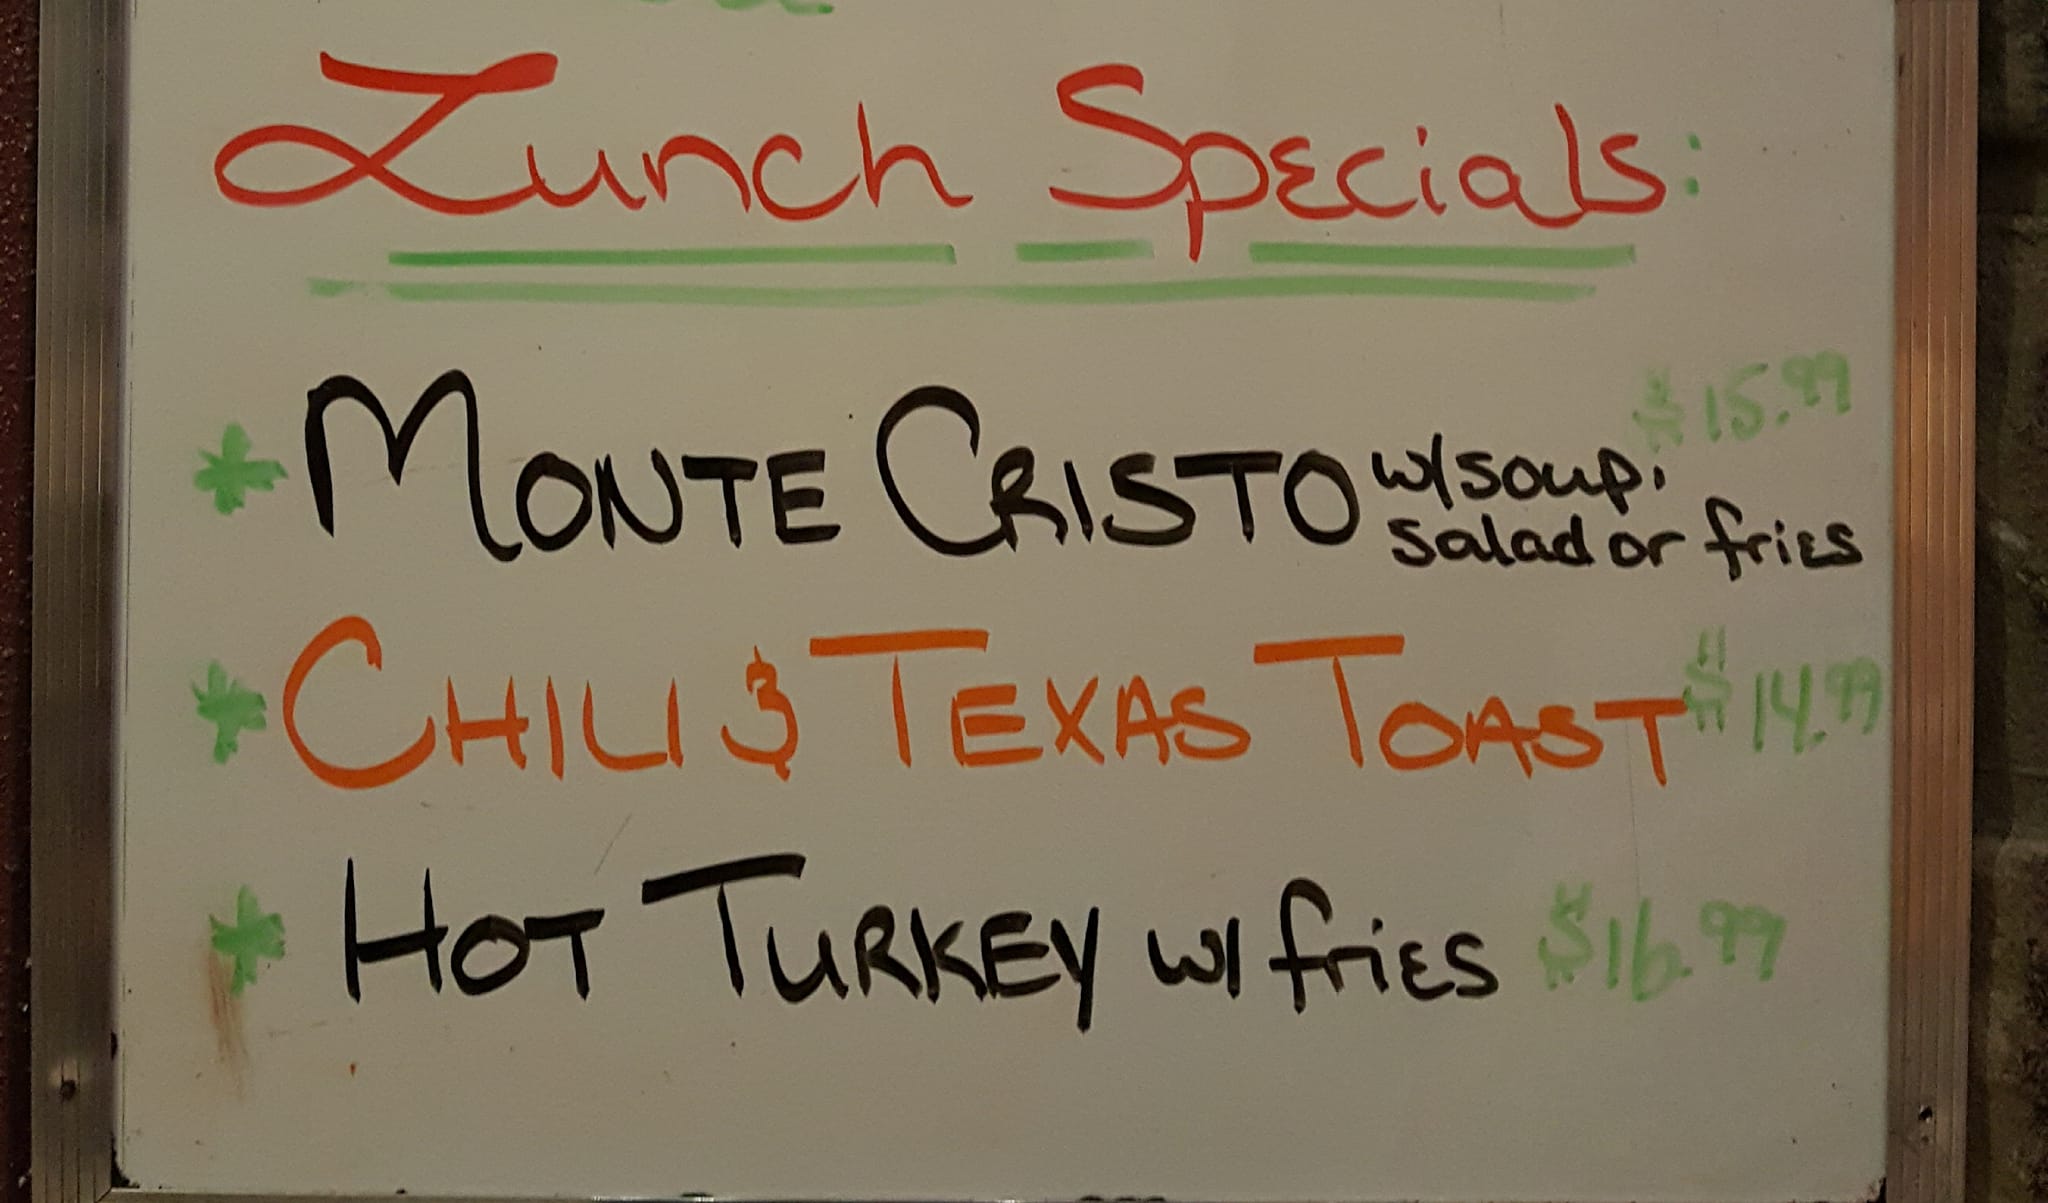 Lunch Specials:
* MONTE CRISTO w/soup, $15.99
salad or fries
* CHILI & TEXAS TOAST $14.99
* HOT TURKEY w/ fries $16.99